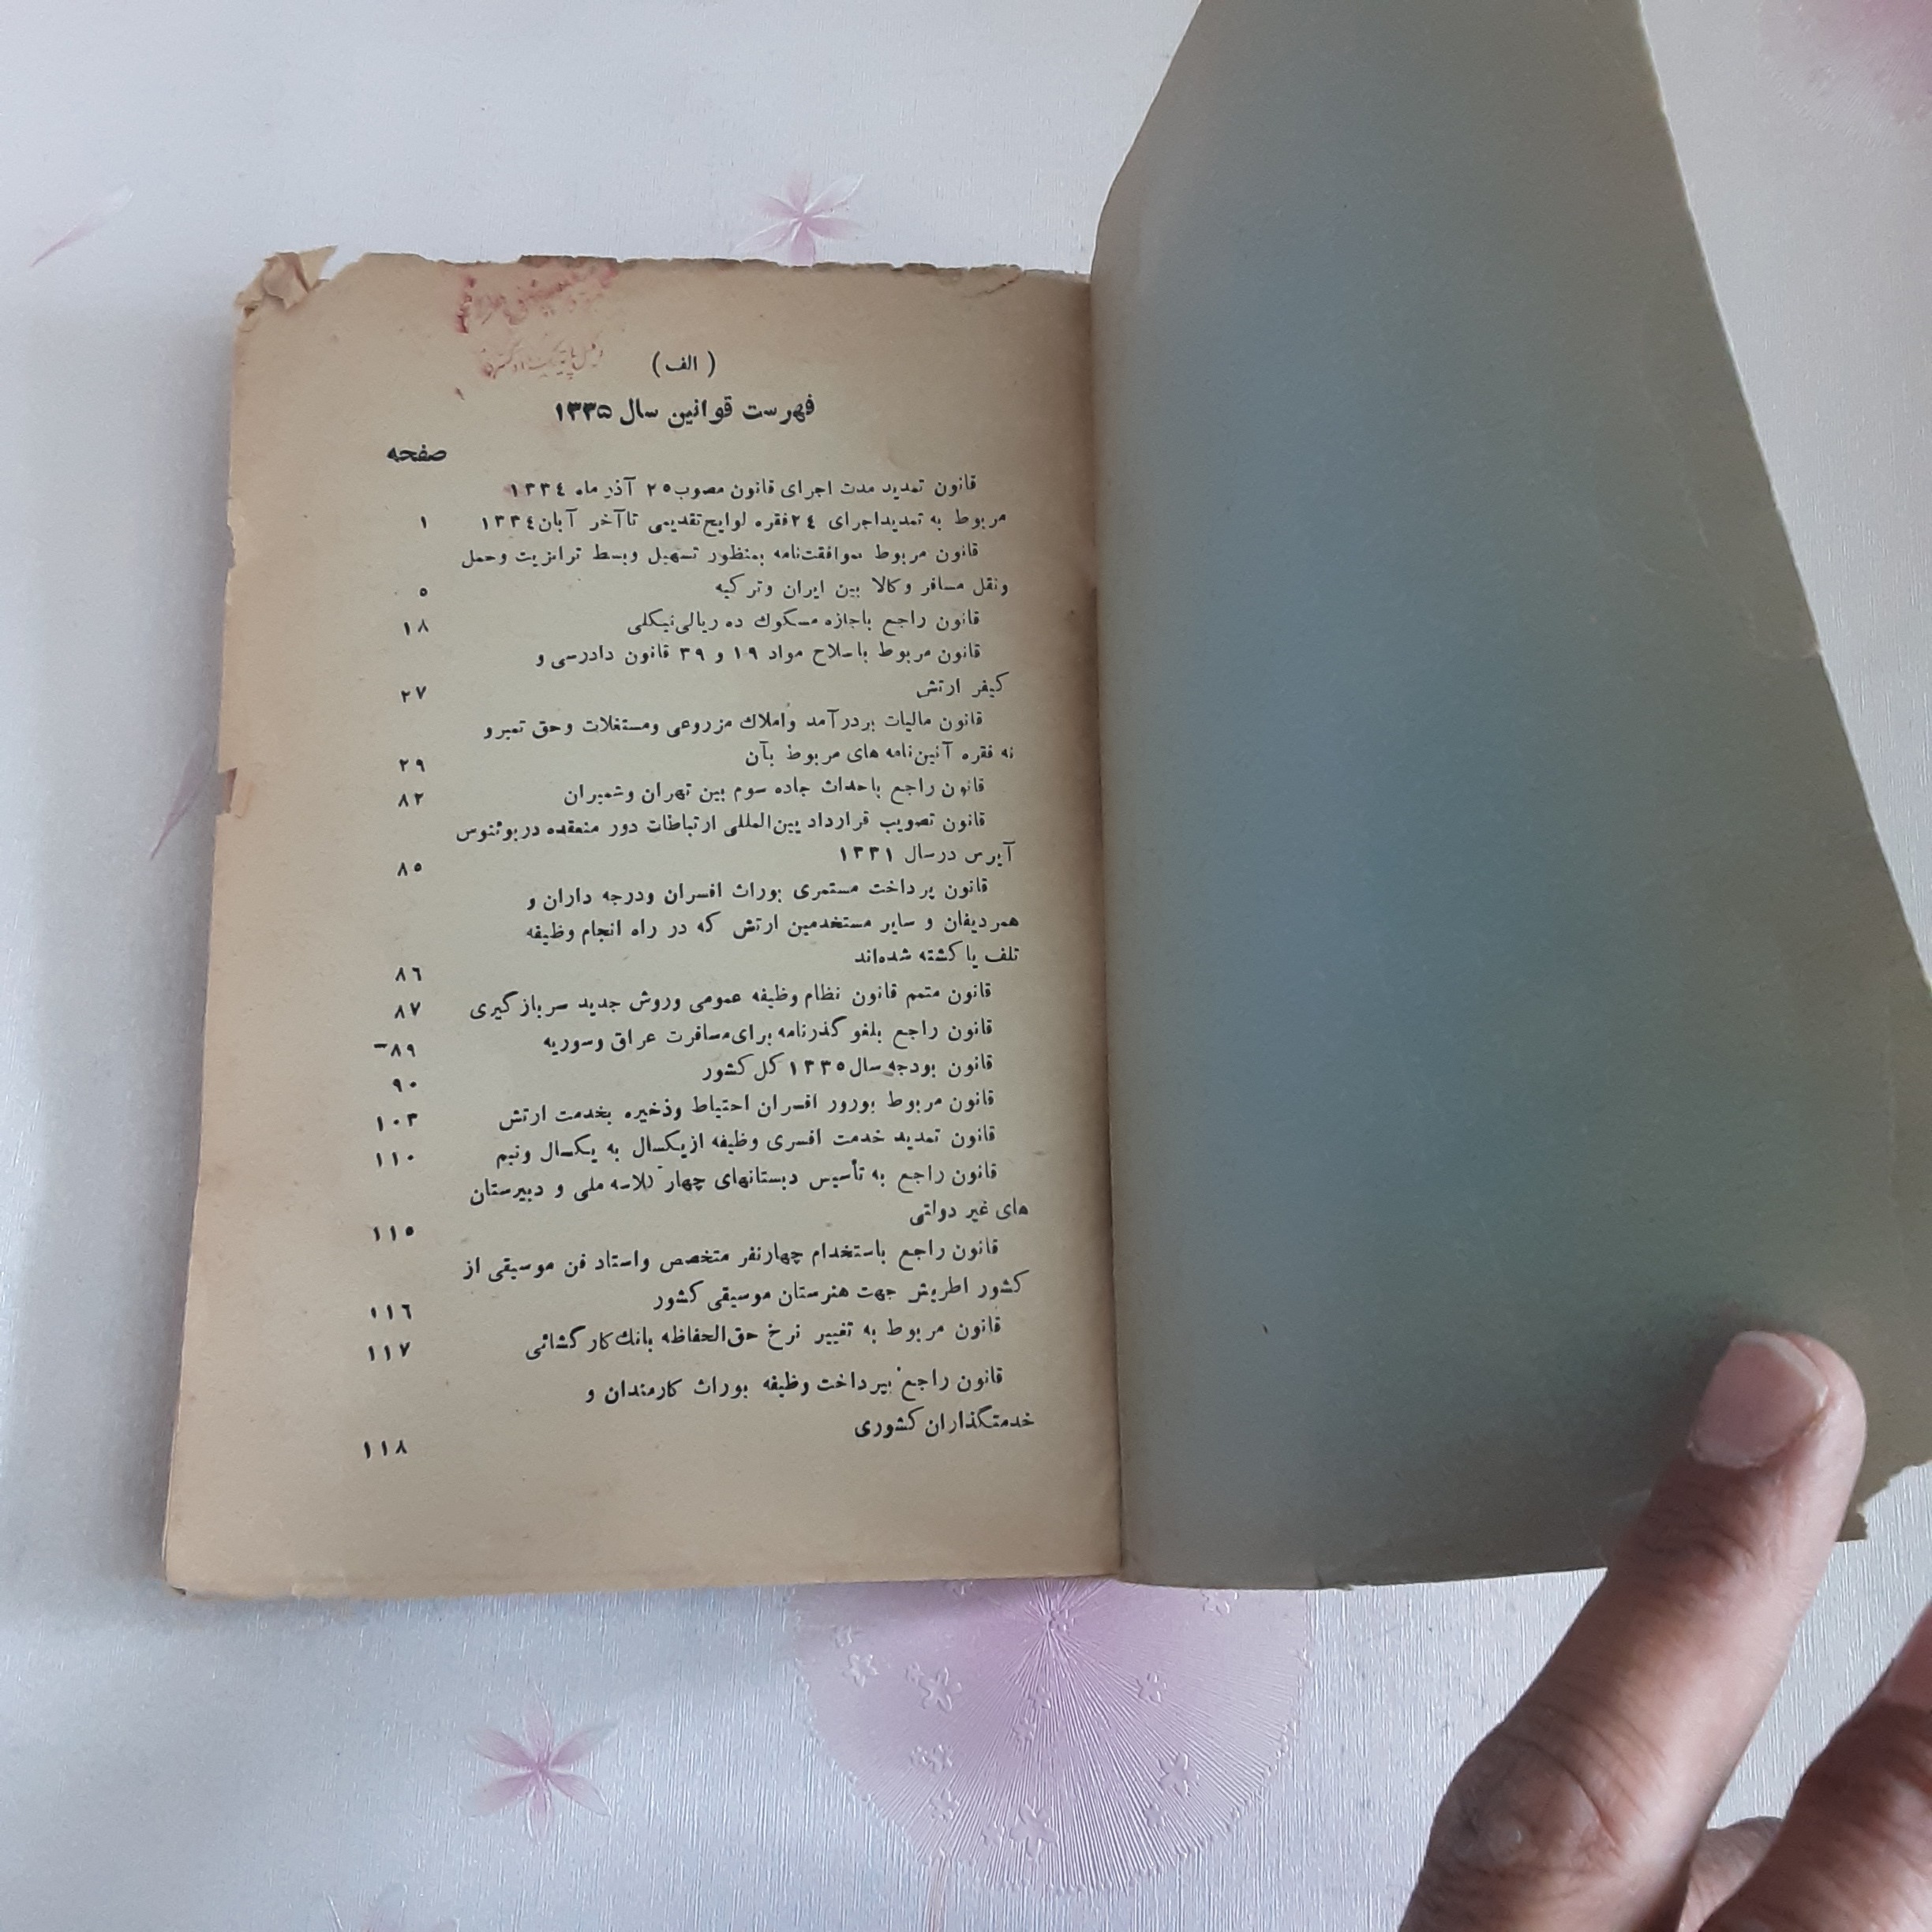 ( الف )
فهرست قوانین سال ۱۳۳۵
صفحه
قانون تمدید مدت اجرای قانون مصوب ۲۵ آذر ماه ۱۳۳۴
مربوط به تمدید اجرای ۲۴ فقره لوایح تقدیمی تا آخر آبان ۱۳۳۴ ۱
قانون مربوط بموافقت‌نامه بمنظور تسهیل و بسط ترانزیت و حمل
و نقل مسافر و کالا بین ایران و ترکیه ۵
قانون راجع باجازه مسکوك ده ریالی نیکلی ۱۸
قانون مربوط باسلاح مواد ۱۹ و ۳۹ قانون دادرسی و
کیفر ارتش ۲۷
قانون مالیات بر درآمد و املاك مزروعی و مستغلات و حق تمبر و
نه فقره آئین‌نامه های مربوط بآن ۲۹
قانون راجع باحداث جاده سوم بین تهران و شمیران ۸۲
قانون تصویب قرارداد بین‌المللی ارتباطات دور منعقده در بوئنوس
آیرس در سال ۱۳۳۱ ۸۵
قانون پرداخت مستمری بوراث افسران و درجه داران و
همردیفان و سایر مستخدمین ارتش که در راه انجام وظیفه
تلف یا کشته شده‌اند ۸۶
قانون متمم قانون نظام وظیفه عمومی و روش جدید سربازگیری ۸۷
قانون راجع بلغو گذرنامه برای مسافرت عراق و سوریه ۸۹–
قانون بودجه سال ۱۳۳۵ کل کشور ۹۰
قانون مربوط بورور افسران احتیاط و ذخیره بخدمت ارتش ۱۰۳
قانون تمدید خدمت افسری وظیفه از یکسال به یکسال و نیم ۱۱۰
قانون راجع به تأسیس دبستانهای چهار کلاسه ملی و دبیرستان
های غیر دولتی ۱۱۵
قانون راجع باستخدام چهار نفر متخصص و استاد فن موسیقی از
کشور اطریش جهت هنرستان موسیقی کشور ۱۱۶
قانون مربوط به تغییر نرخ حق‌الحفاظه بانك کارگشائی ۱۱۷
قانون راجع بپرداخت وظیفه بوراث کارمندان و
خدمتگذاران کشوری ۱۱۸